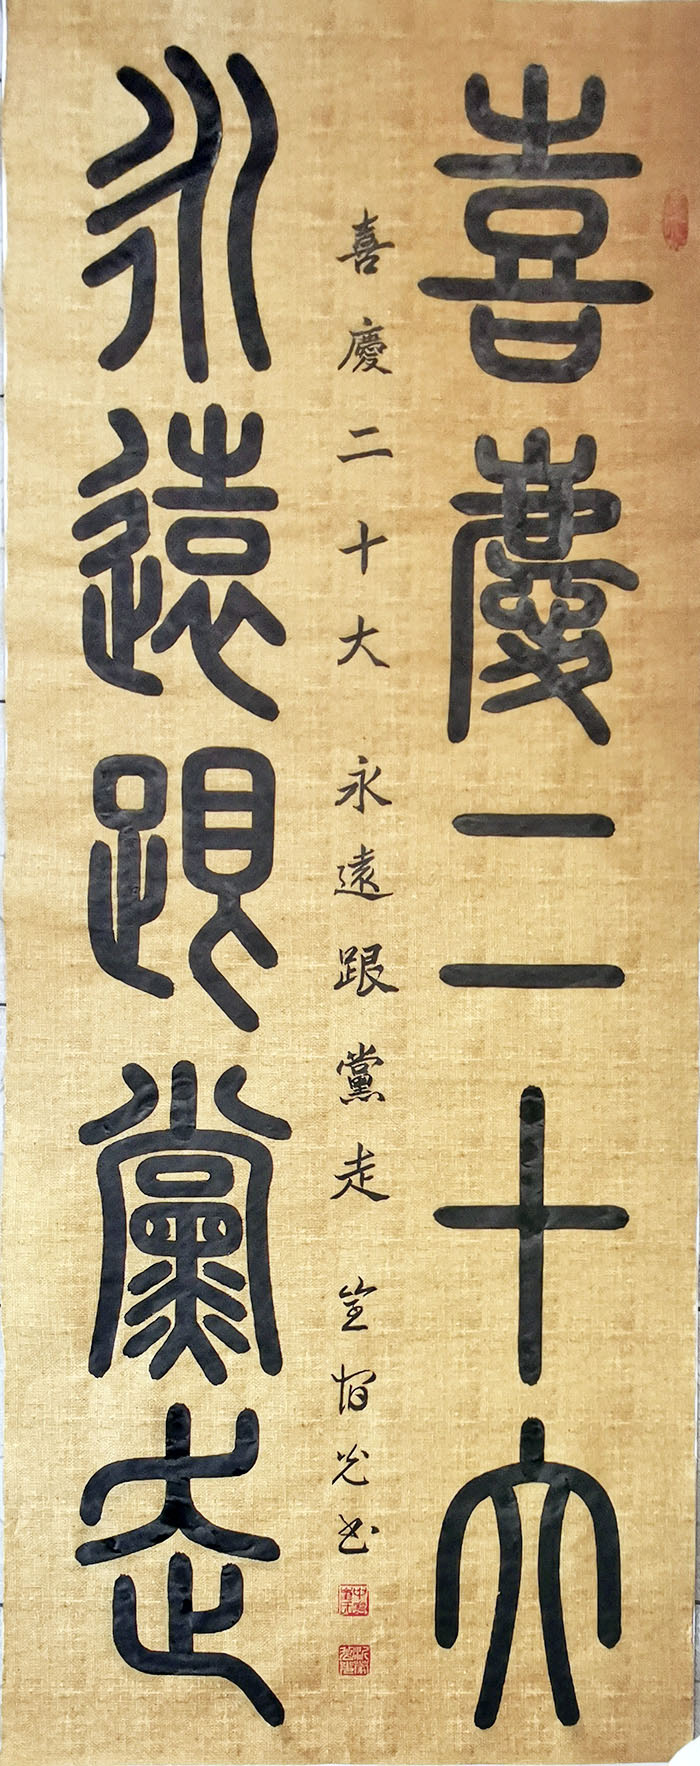 喜慶二十大
喜慶二十大 永遠跟黨走
永遠跟黨走